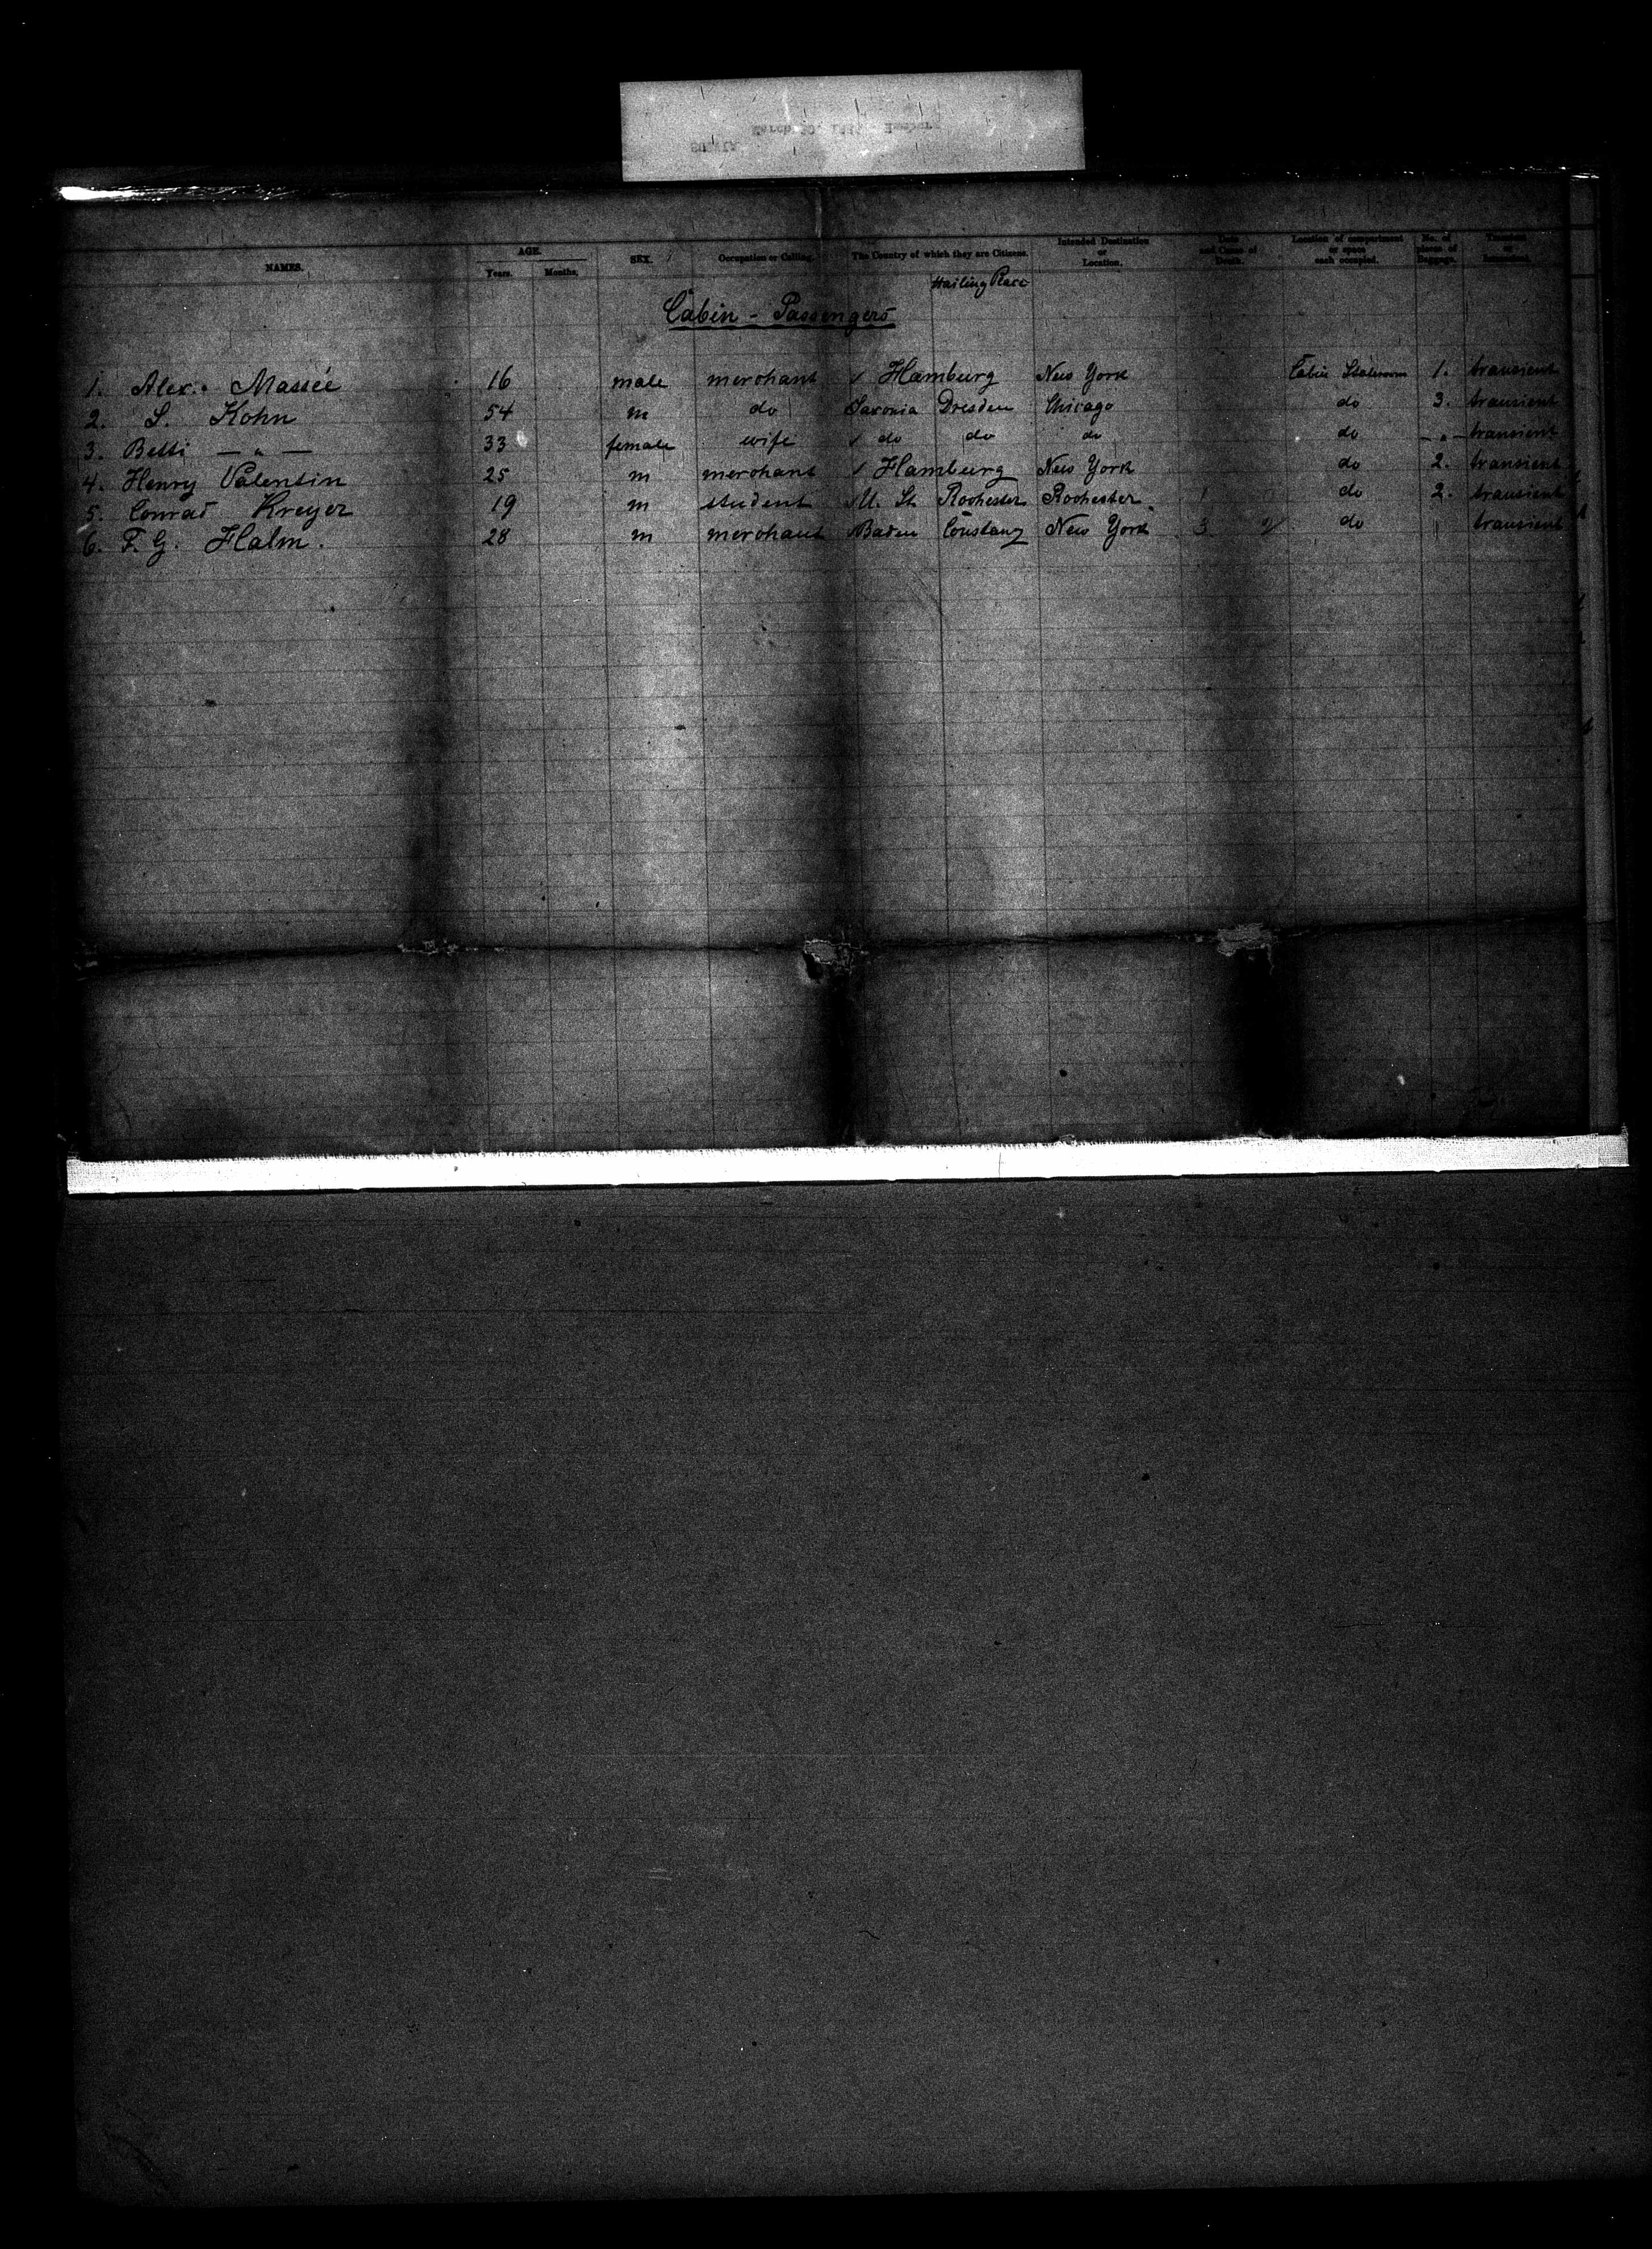 NAMES. AGE. Years. Months. SEX. Occupation or Calling. The Country of which they are Citizens. Intended Destination or Location. Date and Cause of Death. Location of compartment or space each occupied. No. of pieces of Baggage. Transient or
Hailing Place
Cabin - Passengers
1. Alex. Massée 16 male merchant ✓ Hamburg New York Cabin Stateroom 1. transient
2. S. Kohn 54 m do Saxonia Dresden Chicago do 3. transient
3. Betti — " — 33 female wife ✓ do do do do — " — transient
4. Henry Valentin 25 m merchant ✓ Hamburg New York do 2. transient
5. Conrad Kreyer 19 m student U. St. Rochester Rochester do 2. transient
6. F. G. Halm. 28 m merchant Baden Constanz New York do transient